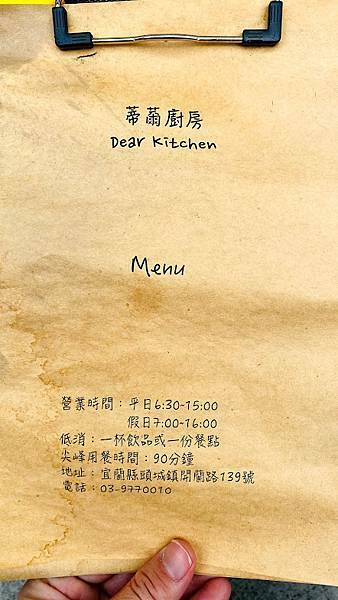 蒂薾廚房
Dear Kitchen
Menu
營業時間：平日6:30-15:00
假日7:00-16:00
低消：一杯飲品或一份餐點
尖峰用餐時間：90分鐘
地址：宜蘭縣頭城鎮開蘭路139號
電話：03-9770010